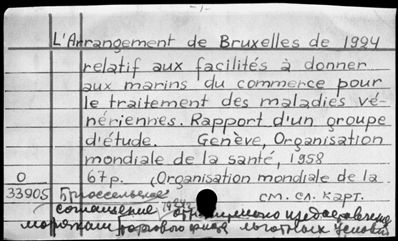 -1-
L'Arrangement de Bruxelles de 1924
relatif aux facilités à donner
aux marins du commerce pour
le traitement des maladies vé-
nériennes. Rapport d'un groupe
d'étude. Genève, Organisation
mondiale de la santé, 1958
0 67p. (Organisation mondiale de la
33905 Брюссельское см. сл. карт.
соглашение 1924г. относительно предоставления
морякам торгового флота льготных условий